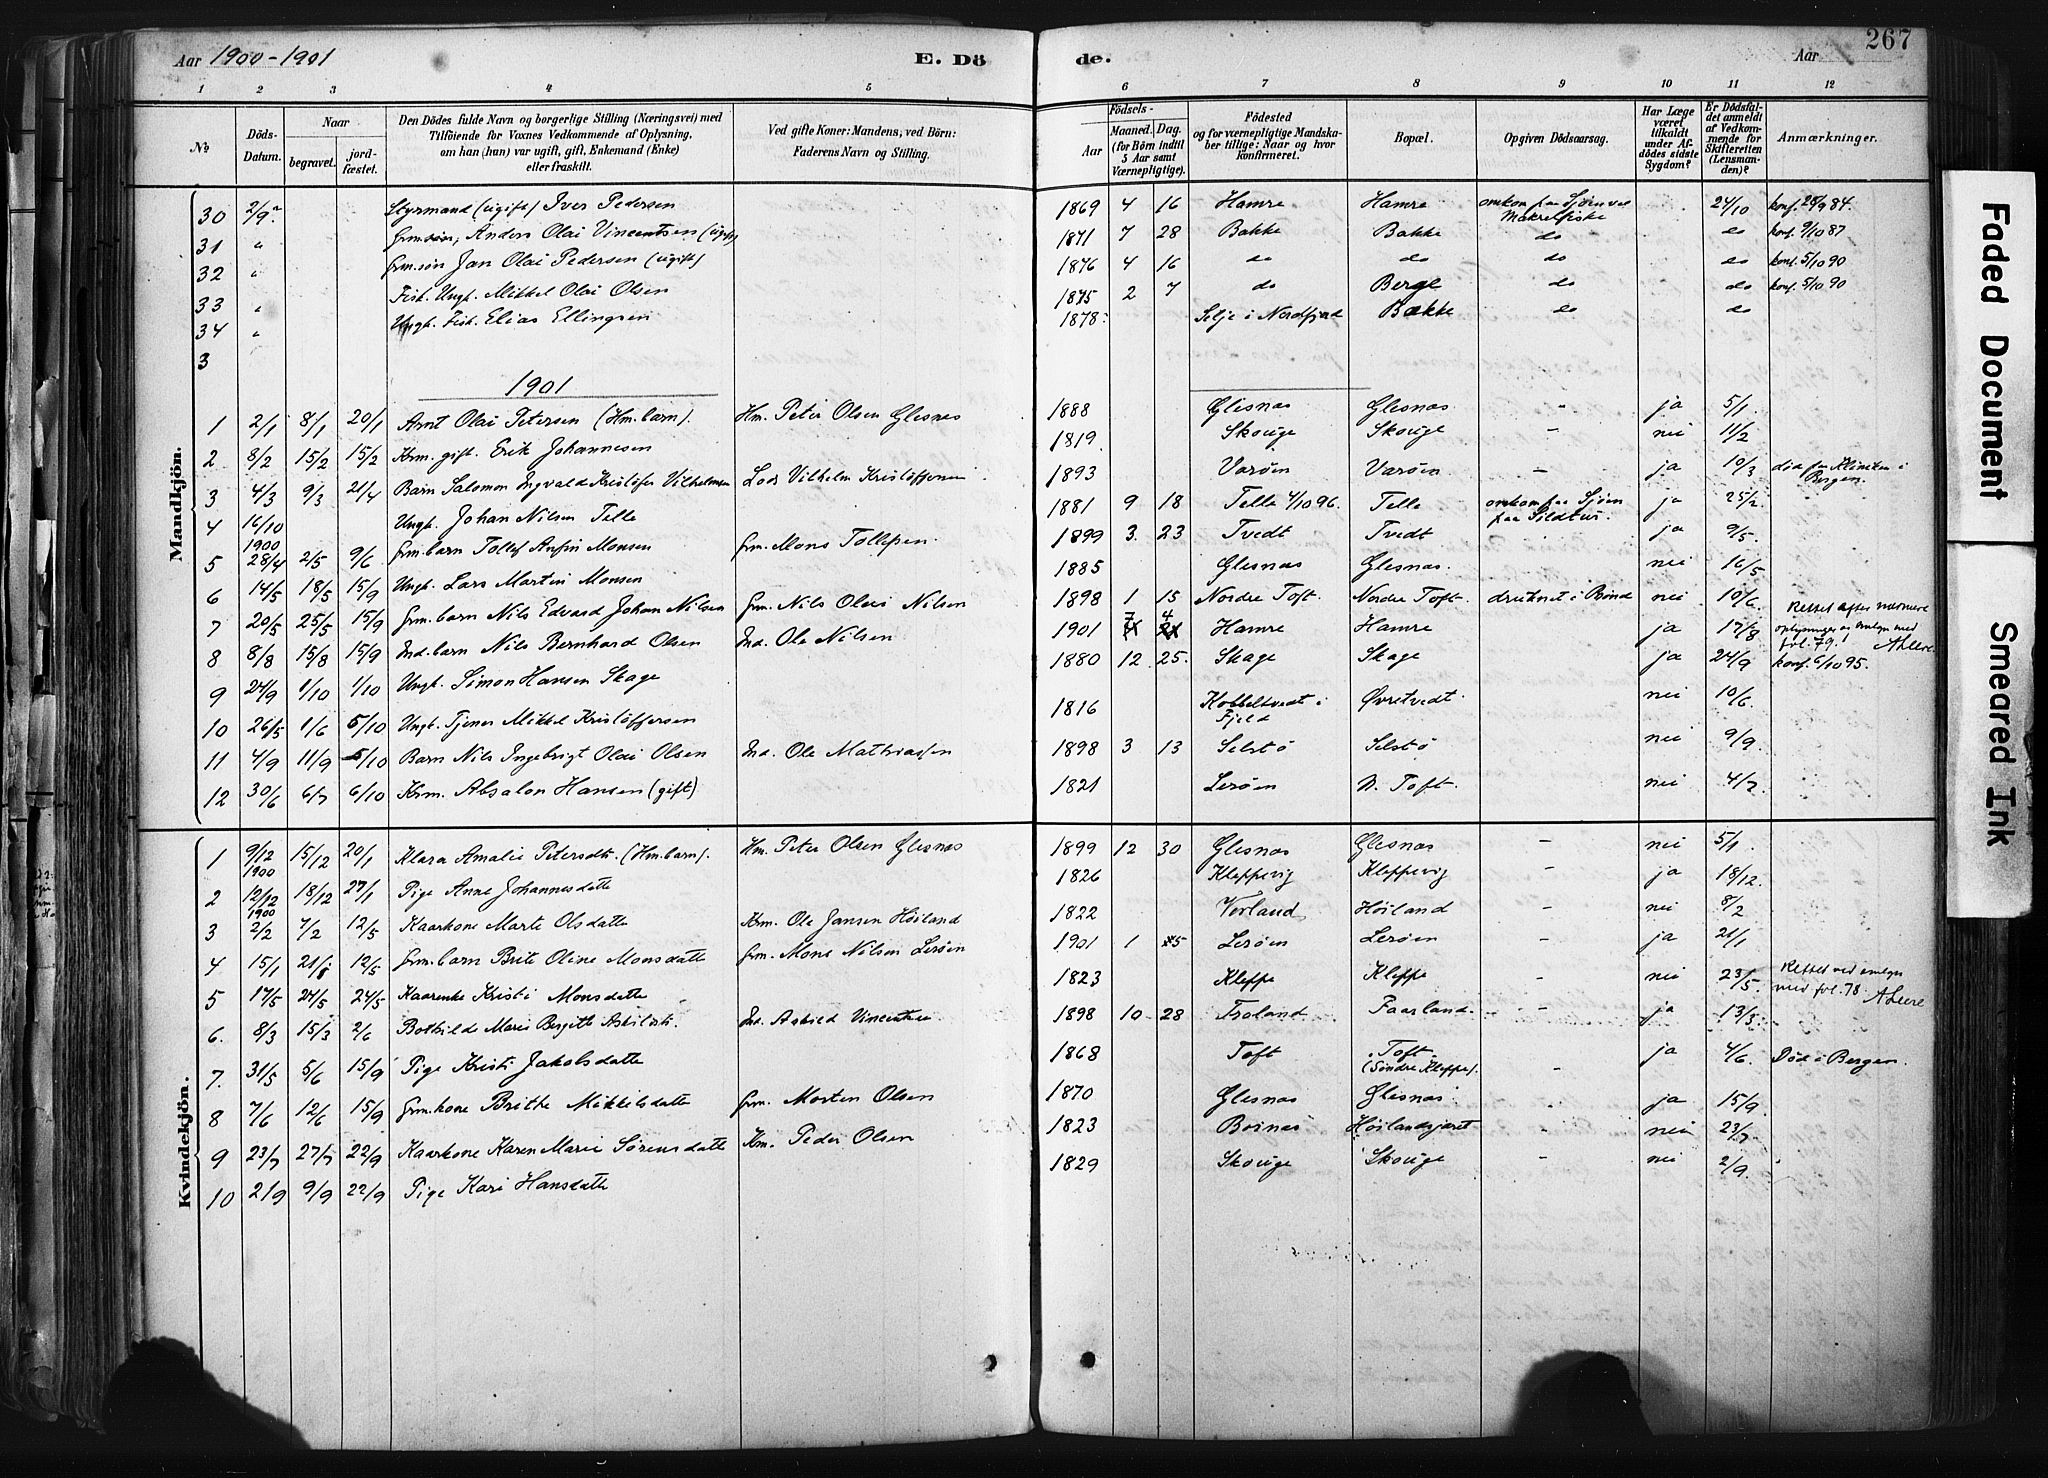 Aar 1900-1901 E. Dö de. Aar 267
1 2 3 4 5 6 7 8 9 10 11 12
№
Döds-Datum.
Naar
begravet.
jordfæstet.
Den Dödes fulde Navn og borgerlige Stilling (Næringsvei) med
Tilföiende for Voxnes Vedkommende af Oplysning,
om han (hun) var ugift, gift, Enkemand (Enke)
eller fraskilt.
Ved gifte Koner: Mandens; ved Börn:
Faderens Navn og Stilling.
Födsels-
Aar
Maaned. Dag.
(for Börn indtil
5 Aar samt
Værnepligtige).
Födested
og for værnepligtige Mandska-
ber tillige: Naar og hvor
konfirmeret.
Bopæl.
Opgiven Dödsaarsag.
Har Læge
været
tilkaldt
under Af-
dödes sidste
Sygdom?
Er Dödsfal-
det anmeldt
af Vedkom-
mende for
Skifteretten
(Lensman-
den)?
Anmærkninger.
Mandkjön.
30 2/9 Styrmand (ugift) Iver Pedersen 1869 4 16 Hamre Hamre omkom paa Sjøen ved Makrelfiske 24/10 konf. 28/9 84.
31 " Grm.søn, Anders Olai Vincentsen (ugift) 1871 7 28 Bakke Bakke do do konf. 9/10 87
32 " Grm.søn Jan Olai Pedersen (ugift) 1876 4 16 do do do do konf. 5/10 90
33 " Fisk. Ungk. Mikkel Olai Olsen 1875 2 7 do Berge do do konf. 5/10 90
34 " Ungk. Fisk. Elias Ellingsen 1878 Selje i Nordfjord Bakke do do
3
1901
1 2/1 8/1 20/1 Arnt Olai Petersen (Hm. barn). Hm. Peter Olsen Glesnæs 1888 Glesnæs Glesnæs - ja 5/1
2 8/2 15/2 15/2 Krm. gift. Erik Johannesen 1819 Skouge Skouge - nei 11/2
3 4/3 9/3 21/4 Barn Salomon Ingvald Kristofer Vilhelmsen Lods Vilhelm Kristoffersen 1893 Varøen Varøen - ja 10/3 død paa Kliniken i Bergen.
4 16/10 1900 Ungk. Johan Nilsen Telle 1881 9 18 Telle 4/10 96. Telle omkom paa Sjøen paa Sildtur. ja 25/2
5 28/4 2/5 9/6 Grm. barn Tollef Anfin Monsen Grm. Mons Tollefsen 1899 3. 23 Tvedt Tvedt ja 9/5.
6 14/5 18/5 15/9 Ungk. Lars Martin Monsen 1885 Glesnæs Glesnæs. nei 16/5
7 20/5 25/5 15/9 Grm. barn Nils Edvard Johan Nilsen Grm. Nils Olai Nilsen 1898 1 15 Nordre Toft. Nordre Toft. druknet i Brønd nei 10/6.
8 8/8 15/8 15/9 Ind. barn Nils Bernhard Olsen Ind. Ole Nilsen 1901 7 4 Hamre Hamre ja 17/8 Rettet efter nærmere oplysninger og overensst. med fol. 79.
9 24/9 1/10 1/10 Ungk. Simon Hansen Skage 1880 12 25. Skage Skage ja 24/9 konf. 6/10 95.
10 26/5 1/6 5/10 Ungk. Tjener Mikkel Kristoffersen 1816 Kobbeltvedt i Fjeld Øvretvedt. nei 10/6.
11 4/9 11/9 5/10 Barn Nils Ingebrigt Olai Olsen Ind. Ole Mathiassen 1898 3 13 Selstø Selstø nei 9/9.
12 30/6 6/7 6/10 Krm. Absalon Hansen (gift) 1821 Lerøen N. Toft. nei 4/7
Kvindekjön.
1 9/12 1900 15/12 20/1 Klara Amalie Petersdt. (Hm. barn). Hm. Peter Olsen Glesnæs 1899 12 30 Glesnæs Glesnæs - nei 5/1.
2 12/12 1900 18/12 27/1 Pige Anne Johannesdatter 1826 Kleppevig Kleppevig - ja 18/12.
3 2/2 7/2 12/5 Kaarkone Marte Olsdatter Krm. Ole Jansen Høiland 1822 Vorland Høiland - nei 8/2
4 15/1 21/1 12/5 Grm. barn Brite Oline Monsdatter Grm. Mons Nilsen Lerøen 1901 1 5 Lerøen Lerøen - ja 21/1
5 17/5 24/5 24/5 Kaarenke Kristi Monsdatter 1823 Kleppe Kleppe - nei 23/5. Rettet ved med fol. 78.
6. 8/3 15/3 2/6 Bothild Marie Bergitte Askildsdt. Ind. Askild Vincentsen 1898 10 28 Troland Faarland - ja 13/3
7. 31/5 5/6 15/9 Pige Kristi Jakobsdatter 1868 Toft Toft (Søndre Kleppe). - ja 4/6. Død i Bergen.
8 7/6 12/6 15/9 Grm.kone Brithe Mikkelsdatter Grm. Morten Olsen 1870 Glesnæs Glesnæs - ja 15/9.
9 23/7 27/7 22/9 Kaarkone Karen Marie Sørensdatter Km. Peder Olsen 1823 Boinæs Høilandsjæret - nei 23/7
10 2/9 9/9 22/9 Pige Kari Hansdatter 1829 Skouge Skouge - nei 2/9.
Faded Document
Smeared Ink